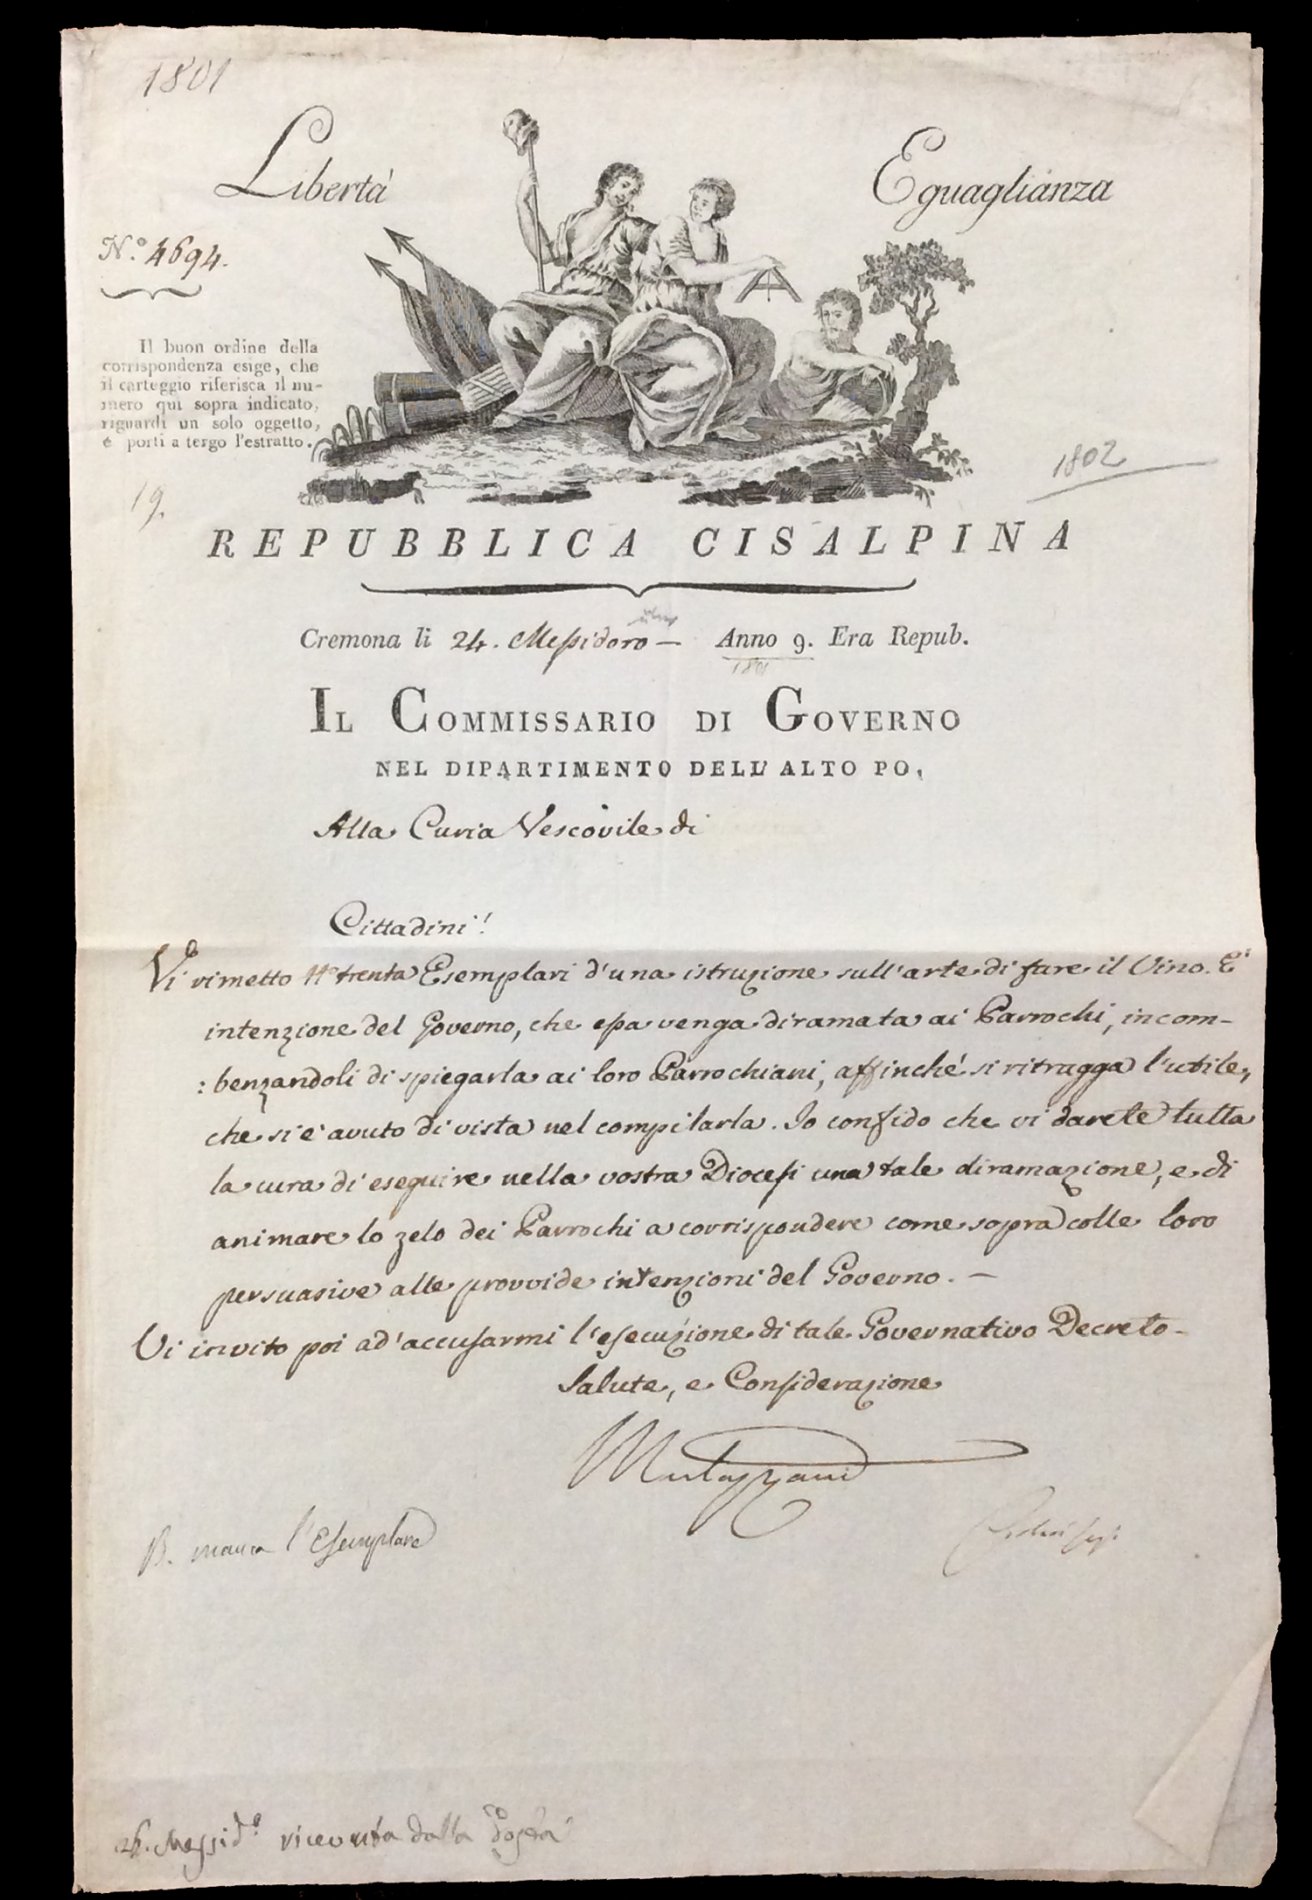 1801
Libertà
Eguaglianza
N.º 4694.
Il buon ordine della
corrispondenza esige, che
il carteggio riferisca il nu-
mero qui sopra indicato,
riguardi un solo oggetto,
e porti a tergo l'estratto.
1802
19.
REPUBBLICA CISALPINA
Cremona li 24. Messidoro — Anno 9. Era Repub.
1801
IL COMMISSARIO DI GOVERNO
NEL DIPARTIMENTO DELL' ALTO PO,
Alla Curia Vescovile di
Cittadini!
Vi rimetto nº trenta Esemplari d'una istruzione sull'arte di fare il Vino. E'
intenzione del Governo, che essa venga diramata ai Parrochi, incom-
:benzandoli di spiegarla ai loro Parrochiani, affinché si ritragga l'utile,
che si è avuto di vista nel compilarla. Io confido che vi darete tutta
la cura di eseguire nella vostra Diocesi una tale diramazione, e di
animare lo zelo dei Parrochi a corrispondere come sopra colle loro
persuasive alle provvide intenzioni del Governo. —
Vi invito poi ad'accusarmi l'esecuzione di tale Governativo Decreto.
Salute, e Considerazione
B. manca l'Esemplare
26. Messid.º ricevuta dalla Posta